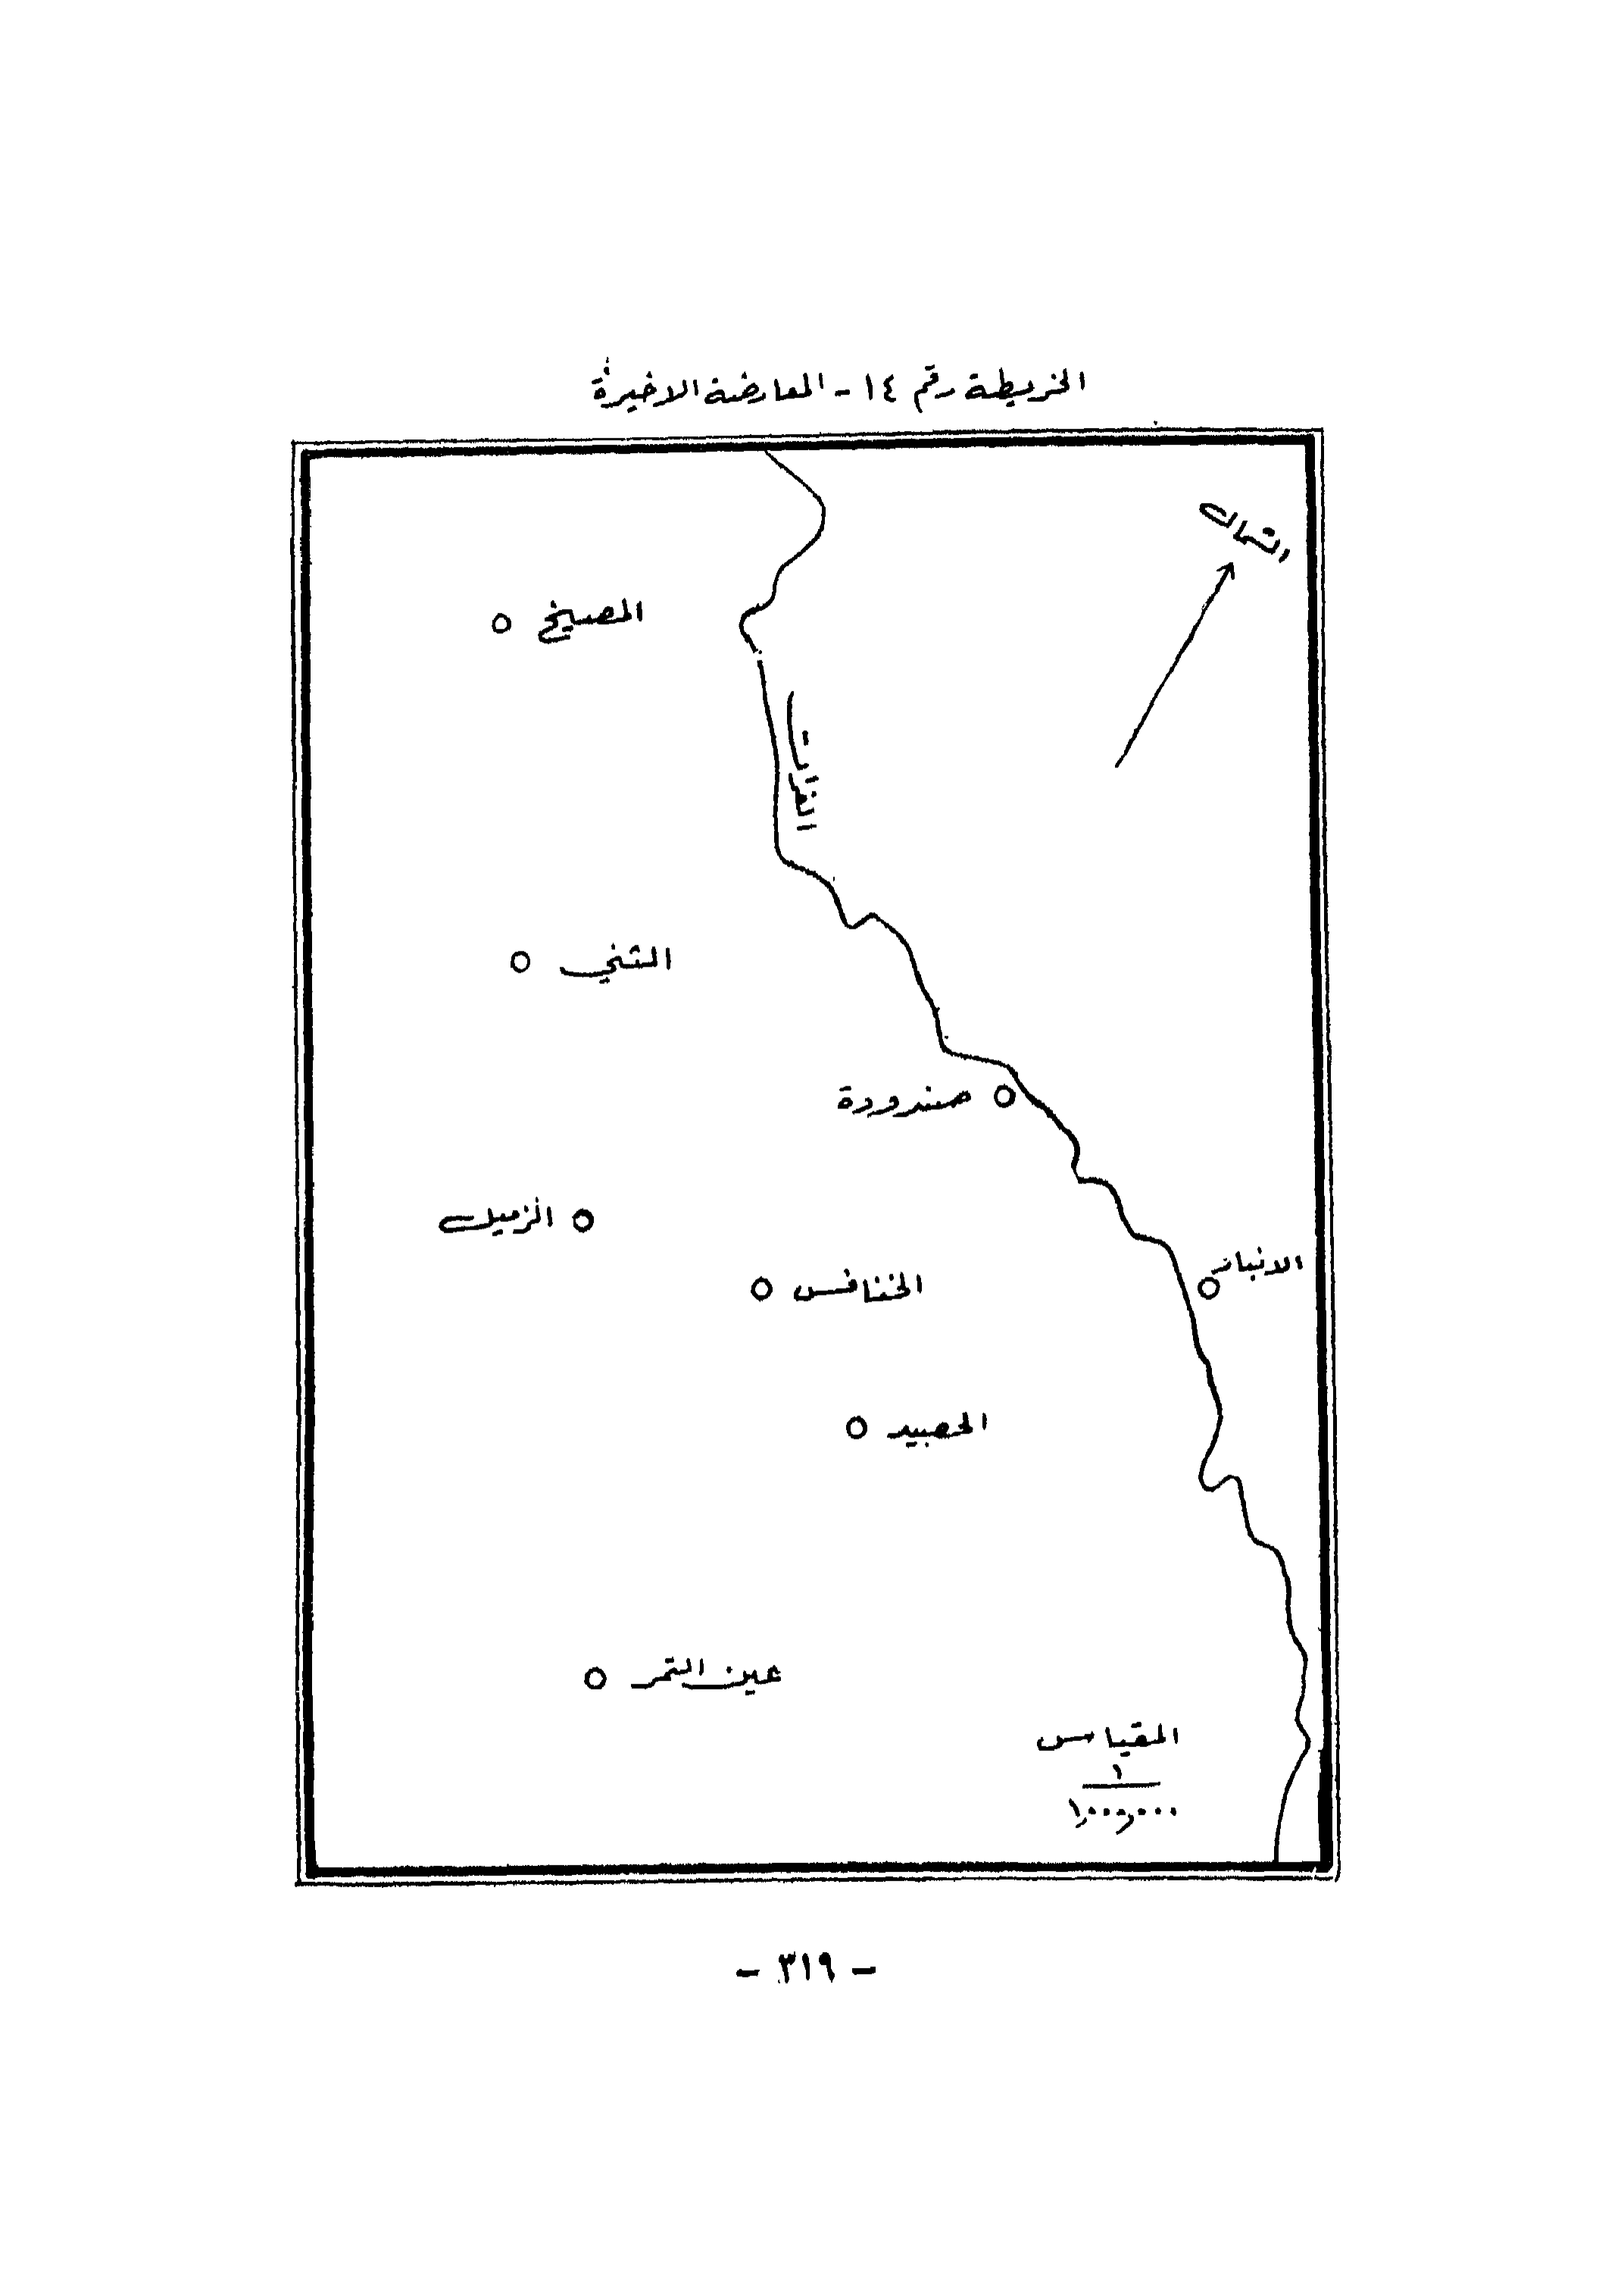 الخريطة رقم ١٤ - المعارضة الاخيرة
الشمال
المصيخ
الفرات
الثني
صندودة
الزميل
الانبار
الخنافس
الحصيد
عين التمر
المقياس
١
١,٠٠٠,٠٠٠
- ٣١٩ -